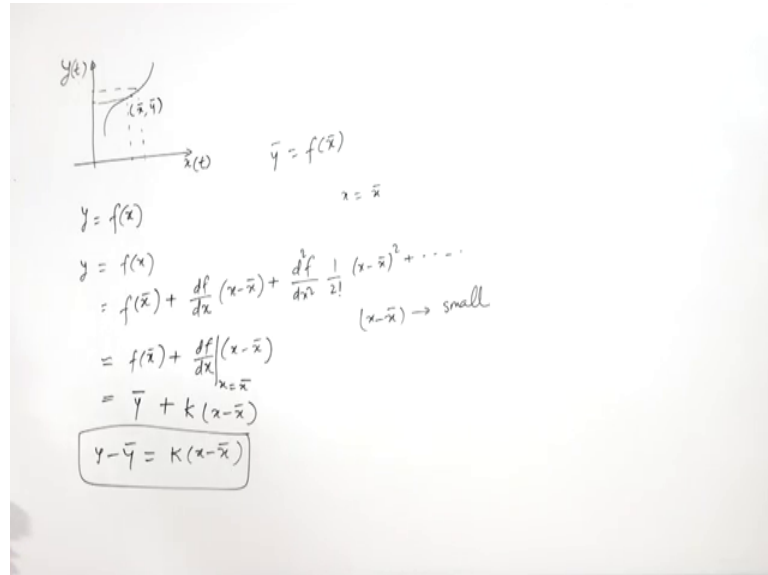 y(t)
(x̄, ȳ)
x(t)
ȳ = f(x̄)
x = x̄
y = f(x)
y = f(x)
= f(x̄) + df/dx (x-x̄) + d²f/dx² 1/2! (x-x̄)² + ‑ ‑ ‑ ‑
(x-x̄) → small
= f(x̄) + df/dx|x=x̄ (x-x̄)
= ȳ + K(x-x̄)
y-ȳ = K(x-x̄)